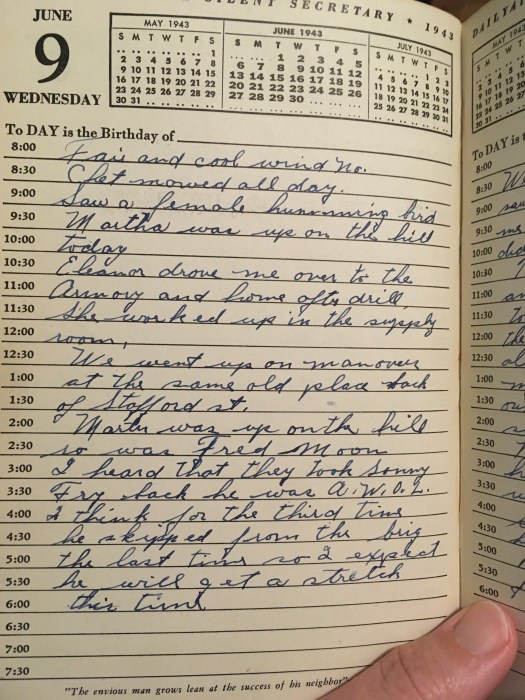 SILENT SECRETARY ★ 1943
DAILYAI
JUNE
9
WEDNESDAY
MAY 1943
S M T W T F S
.. .. .. .. .. .. 1
2 3 4 5 6 7 8
9 10 11 12 13 14 15
16 17 18 19 20 21 22
23 24 25 26 27 28 29
30 31 .. .. .. .. ..
JUNE 1943
S M T W T F S
.. .. 1 2 3 4 5
6 7 8 9 10 11 12
13 14 15 16 17 18 19
20 21 22 23 24 25 26
27 28 29 30 .. .. ..
JULY 1943
S M T W T F S
.. .. .. .. 1 2 3
4 5 6 7 8 9 10
11 12 13 14 15 16 17
18 19 20 21 22 23 24
25 26 27 28 29 30 31
To DAY is the Birthday of
8:00 Fair and cool wind No.
8:30 Chet mowed all day.
9:00 Saw a female humming bird
9:30 Martha was up on the hill
10:00 today
10:30 Eleanor drove me over to the
11:00 Armory and home after drill,
11:30 she worked up in the supply
12:00 room,
12:30 We went up on manovers
1:00 at the same old place back
1:30 of Stafford st.
2:00 Martin was up on the hill
2:30 so was Fred Moon
3:00 I heard that they took Sonny
3:30 Fry back he was A.W.O.L.
4:00 I think for the third time
4:30 he skipped from the brig
5:00 the last time so I expect
5:30 he will get a stretch
6:00 this time
6:30
7:00
7:30
"The envious man grows lean at the success of his neighbor"
MAY 1943
To DAY is t
8:00
8:30 W
9:00
9:30
10:00
10:30
11:00
11:30
12:00
12:30
1:00
1:30
2:00
2:30
3:00
3:30
4:00
4:30
5:00
5:30
6:00